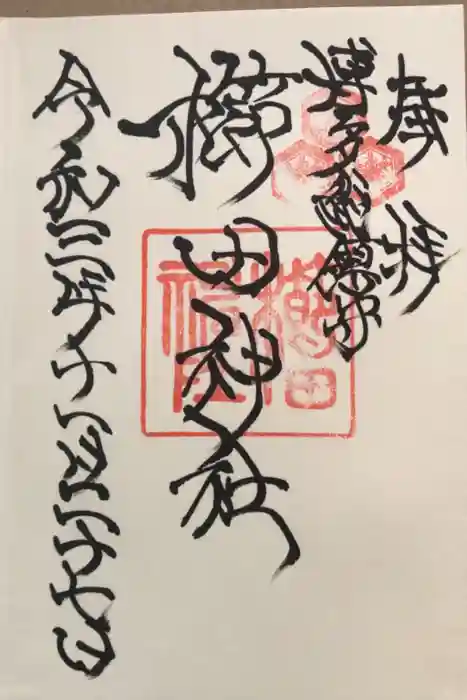 奉拝
博多総鎮守
櫛田神社
令和三年十一月二十七日